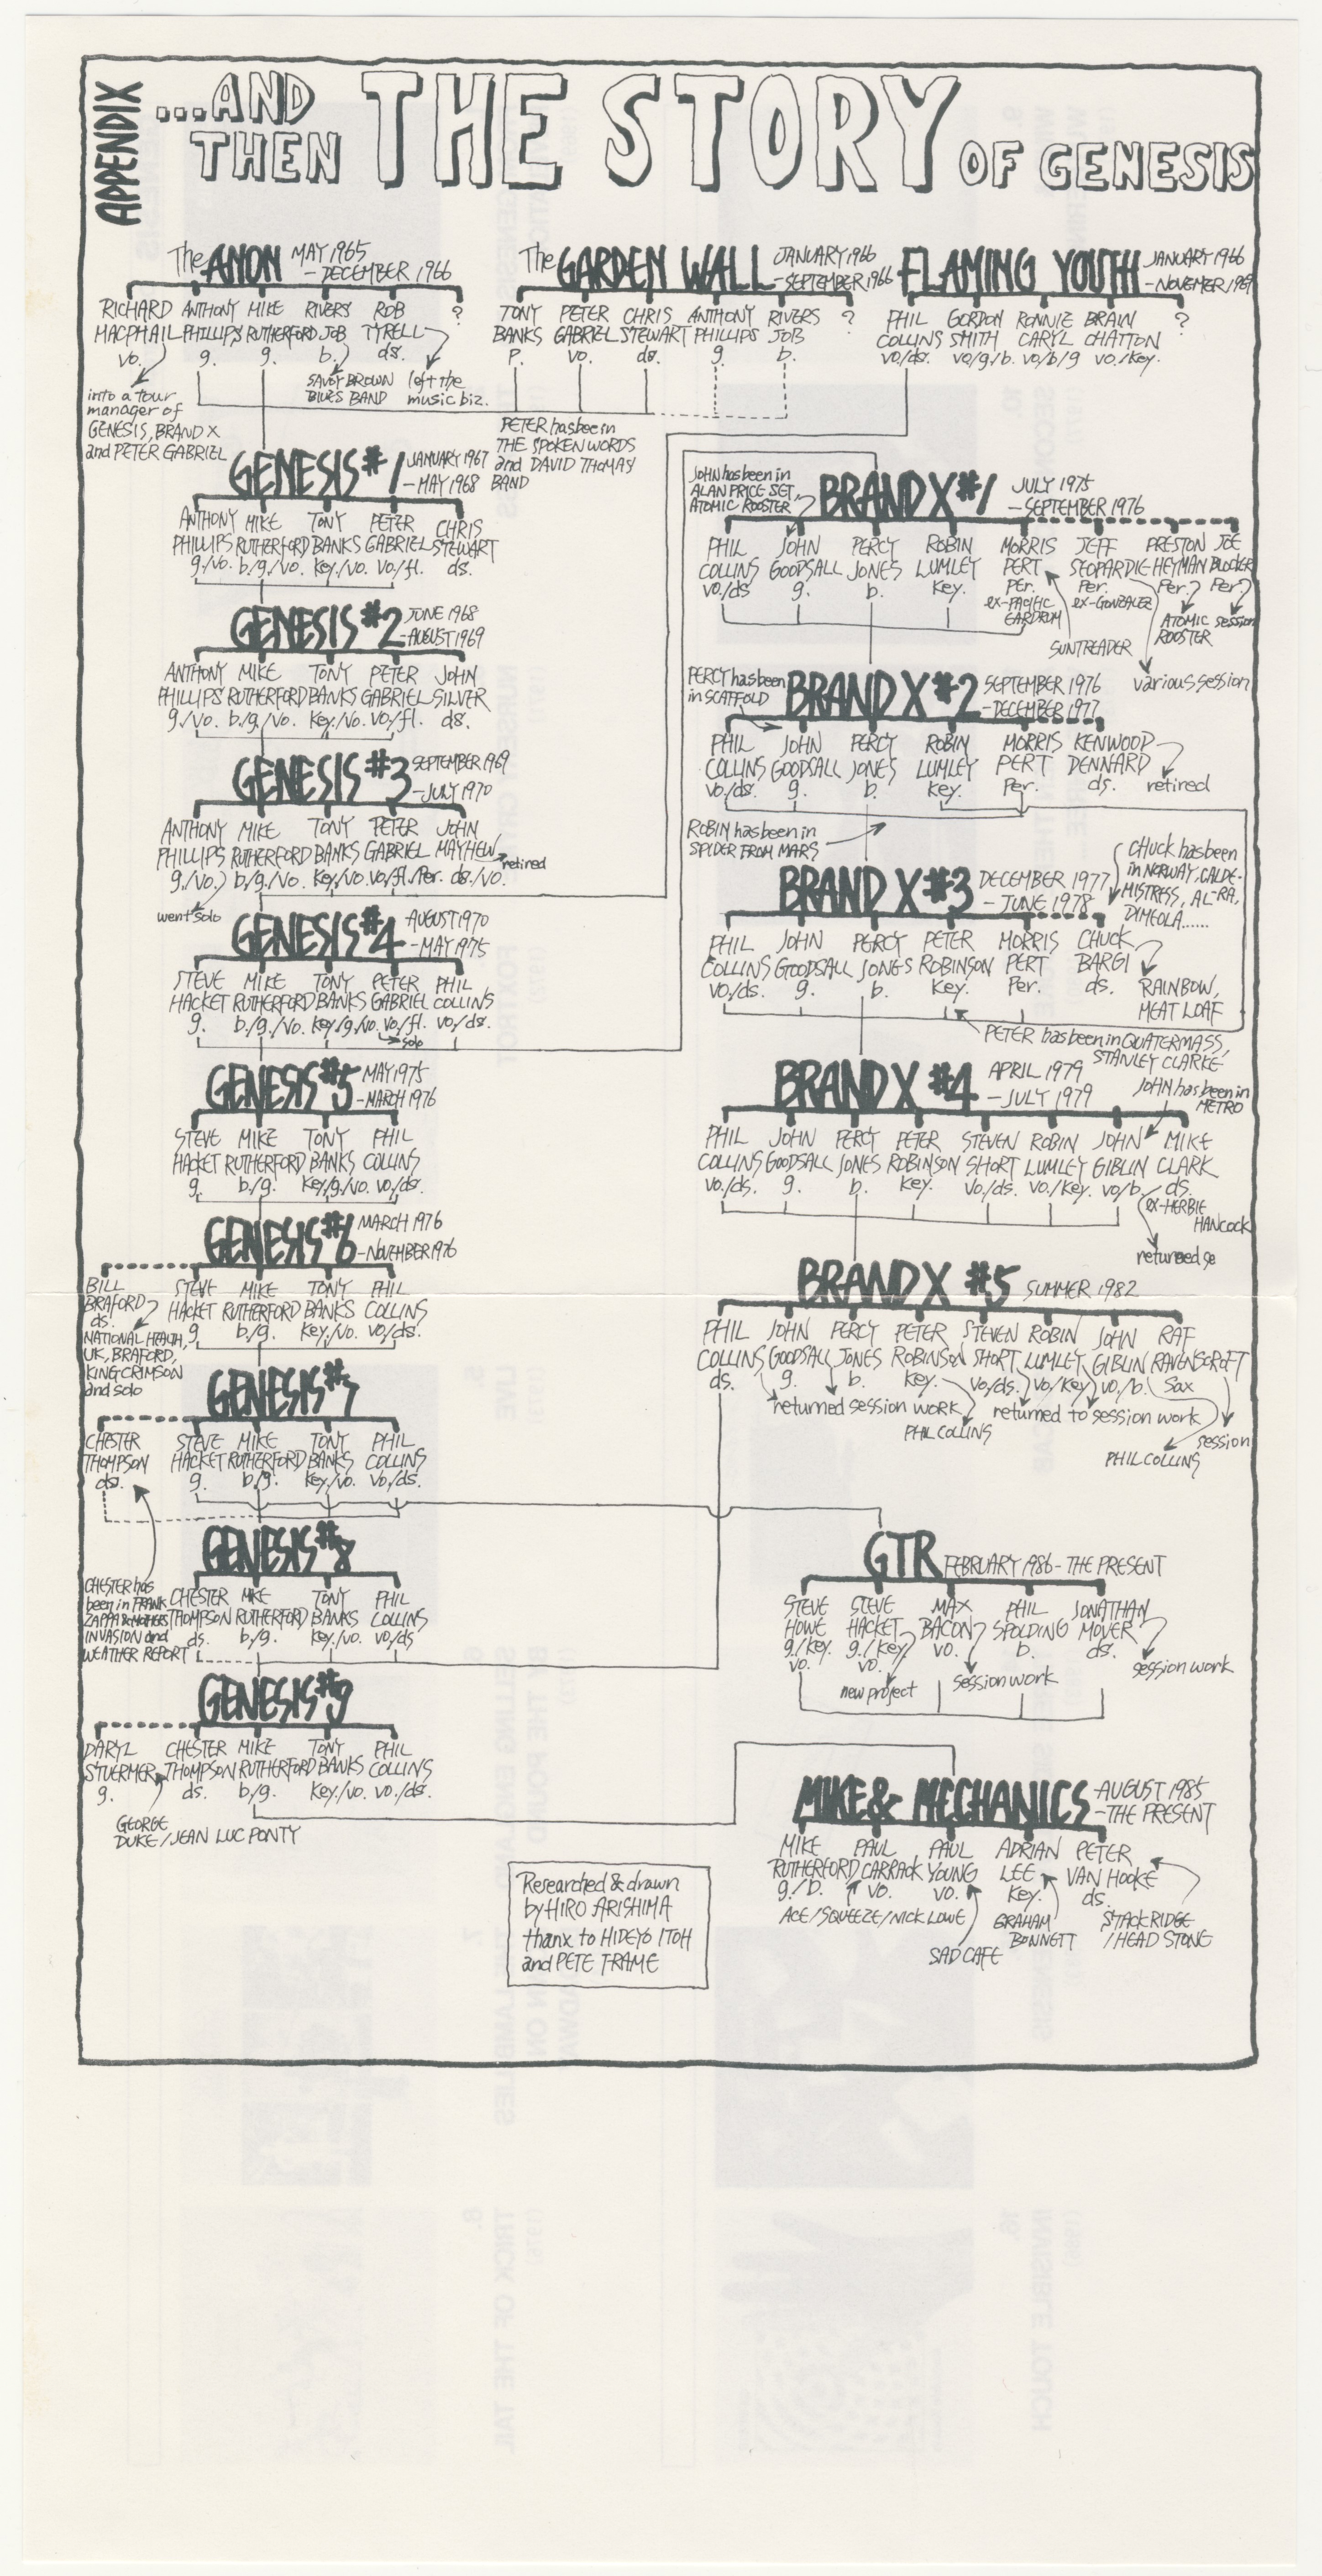 APPENDIX
...AND
THEN THE STORY OF GENESIS
The ANON MAY 1965
– DECEMBER 1966
RICHARD ANTHONY MIKE RIVERS ROB ?
MACPHAIL PHILLIPS RUTHERFORD JOB TYRELL
vo. g. g. b. ds.
into a tour
manager of
GENESIS, BRAND X
and PETER GABRIEL
SAVOY BROWN
BLUES BAND
left the
music biz.
The GARDEN WALL JANUARY 1966
– SEPTEMBER 1966
TONY PETER CHRIS ANTHONY RIVERS ?
BANKS GABRIEL STEWART PHILLIPS JOB
P. vo. ds. g. b.
PETER has been in
THE SPOKEN WORDS
and DAVID THOMAS
BAND
FLAMING YOUTH JANUARY 1966
– NOVEMER 1969
PHIL GORDON RONNIE BRAIN ?
COLLINS SMITH CARYL CHATTON
vo/ds. vo/g/b. vo/b/g vo./key.
GENESIS #1 JANUARY 1967
– MAY 1968
ANTHONY MIKE TONY PETER CHRIS
PHILLIPS RUTHERFORD BANKS GABRIEL STEWART
g./vo. b/g./vo. key./vo. vo/fl. ds.
GENESIS #2 JUNE 1968
– AUGUST 1969
ANTHONY MIKE TONY PETER JOHN
PHILLIPS RUTHERFORD BANKS GABRIEL SILVER
g./vo. b./g./vo. key./vo. vo/fl. ds.
GENESIS #3 SEPTEMBER 1969
– JULY 1970
ANTHONY MIKE TONY PETER JOHN
PHILLIPS RUTHERFORD BANKS GABRIEL MAYHEW
retired
g./vo. b/g./vo. key/vo. vo/fl./Per. ds./vo.
went solo
GENESIS #4 AUGUST 1970
– MAY 1975
STEVE MIKE TONY PETER PHIL
HACKET RUTHERFORD BANKS GABRIEL COLLINS
g. b./g./vo. key/g./vo. vo/fl. vo/ds.
solo
GENESIS #5 MAY 1975
– MARCH 1976
STEVE MIKE TONY PHIL
HACKET RUTHERFORD BANKS COLLINS
g b./g. key/g./vo. vo/ds.
GENESIS #6 MARCH 1976
– NOVEMBER 1976
BILL STEVE MIKE TONY PHIL
BRAFORD HACKET RUTHERFORD BANKS COLLINS
ds. g b/g. key./vo. vo/ds.
NATIONAL HEALTH,
UK, BRAFORD,
KING CRIMSON
and solo
GENESIS #7
CHESTER STEVE MIKE TONY PHIL
THOMPSON HACKET RUTHERFORD BANKS COLLINS
ds. g. b/g. key/vo. vo/ds.
GENESIS #8
CHESTER has
been in FRANK
ZAPPA & MOTHERS
INVASION and
WEATHER REPORT
CHESTER MIKE TONY PHIL
THOMPSON RUTHERFORD BANKS LOLLINS
ds. b/g. key./vo. vo/ds
GENESIS #9
DARYL CHESTER MIKE TONY PHIL
STUERMER THOMPSON RUTHERFORD BANKS COLLINS
g. ds. b/g. key/vo. vo./ds.
GEORGE
DUKE / JEAN LUC PONTY
JOHN has been in
ALAN PRICE SET,
ATOMIC ROOSTER
BRAND X #1 JULY 1975
– SEPTEMBER 1976
PHIL JOHN PERCY ROBIN MORRIS JEFF PRESTON JOE
COLLINS GOODSALL JONES LUMLEY PERT SEOPARDIE HEYMAN BLOCKER
vo/ds g. b. key. Per. Per. Per. Per.
ex-PACIFIC
EARDRUM
ex-GONZALEZ
SUNTREADER
ATOMIC
ROOSTER
session
various session
PERCY has been
in SCAFFOLD
BRAND X #2 SEPTEMBER 1976
– DECEMBER 1977
PHIL JOHN PERCY ROBIN MORRIS KENWOOD
COLLINS GOODSALL JONES LUMLEY PERT DENNARD
vo./ds. g. b. key. Per. ds.
retired
ROBIN has been in
SPIDER FROM MARS
BRAND X #3 DECEMBER 1977
– JUNE 1978
CHUCK has been
in NORWAY, CALDE-
MISTRESS, AL-RA,
DIMEOLA......
PHIL JOHN PERCY PETER MORRIS CHUCK
COLLINS GOODSALL JONES ROBINSON PERT BARGI
vo./ds. g. b. key. Per. ds.
RAINBOW,
MEAT LOAF
PETER has been in QUATERMASS,
STANLEY CLARKE
BRAND X #4 APRIL 1979
– JULY 1979
JOHN has been in
METRO
PHIL JOHN PERCY PETER STEVEN ROBIN JOHN MIKE
COLLINS GOODSALL JONES ROBINSON SHORT LUMLEY GIBLIN CLARK
vo./ds. g. b. key. vo./ds. vo./key. vo/b. ds.
ex-HERBIE
HANCOCK
returned se
BRAND X #5 SUMMER 1982
PHIL JOHN PERCY PETER STEVEN ROBIN JOHN RAF
COLLINS GOODSALL JONES ROBINSON SHORT LUMLEY GIBLIN RAVENSCROFT
ds. g. b. key. vo/ds. vo/key vo./b. Sax
returned session work
PHIL COLLINS
returned to session work
session
PHIL COLLINS
GTR FEBRUARY 1986 – THE PRESENT
STEVE STEVE MAX PHIL JONATHAN
HOWE HACKET BACON SPOLDING MOVER
g./key. g./key vo. b. ds.
vo. vo.
new project
session work
session work
MIKE & MECHANICS AUGUST 1985
– THE PRESENT
MIKE PAUL PAUL ADRIAN PETER
RUTHERFORD CARRACK YOUNG LEE VAN HOOKE
g./b. vo. vo. key. ds.
ACE/SQUEEZE/NICK LOWE
SAD CAFE
GRAHAM
BONNETT
STACKRIDGE
/HEAD STONE
Researched & drawn
by HIRO ARISHIMA
thanx to HIDEYO ITOH
and PETE FRAME